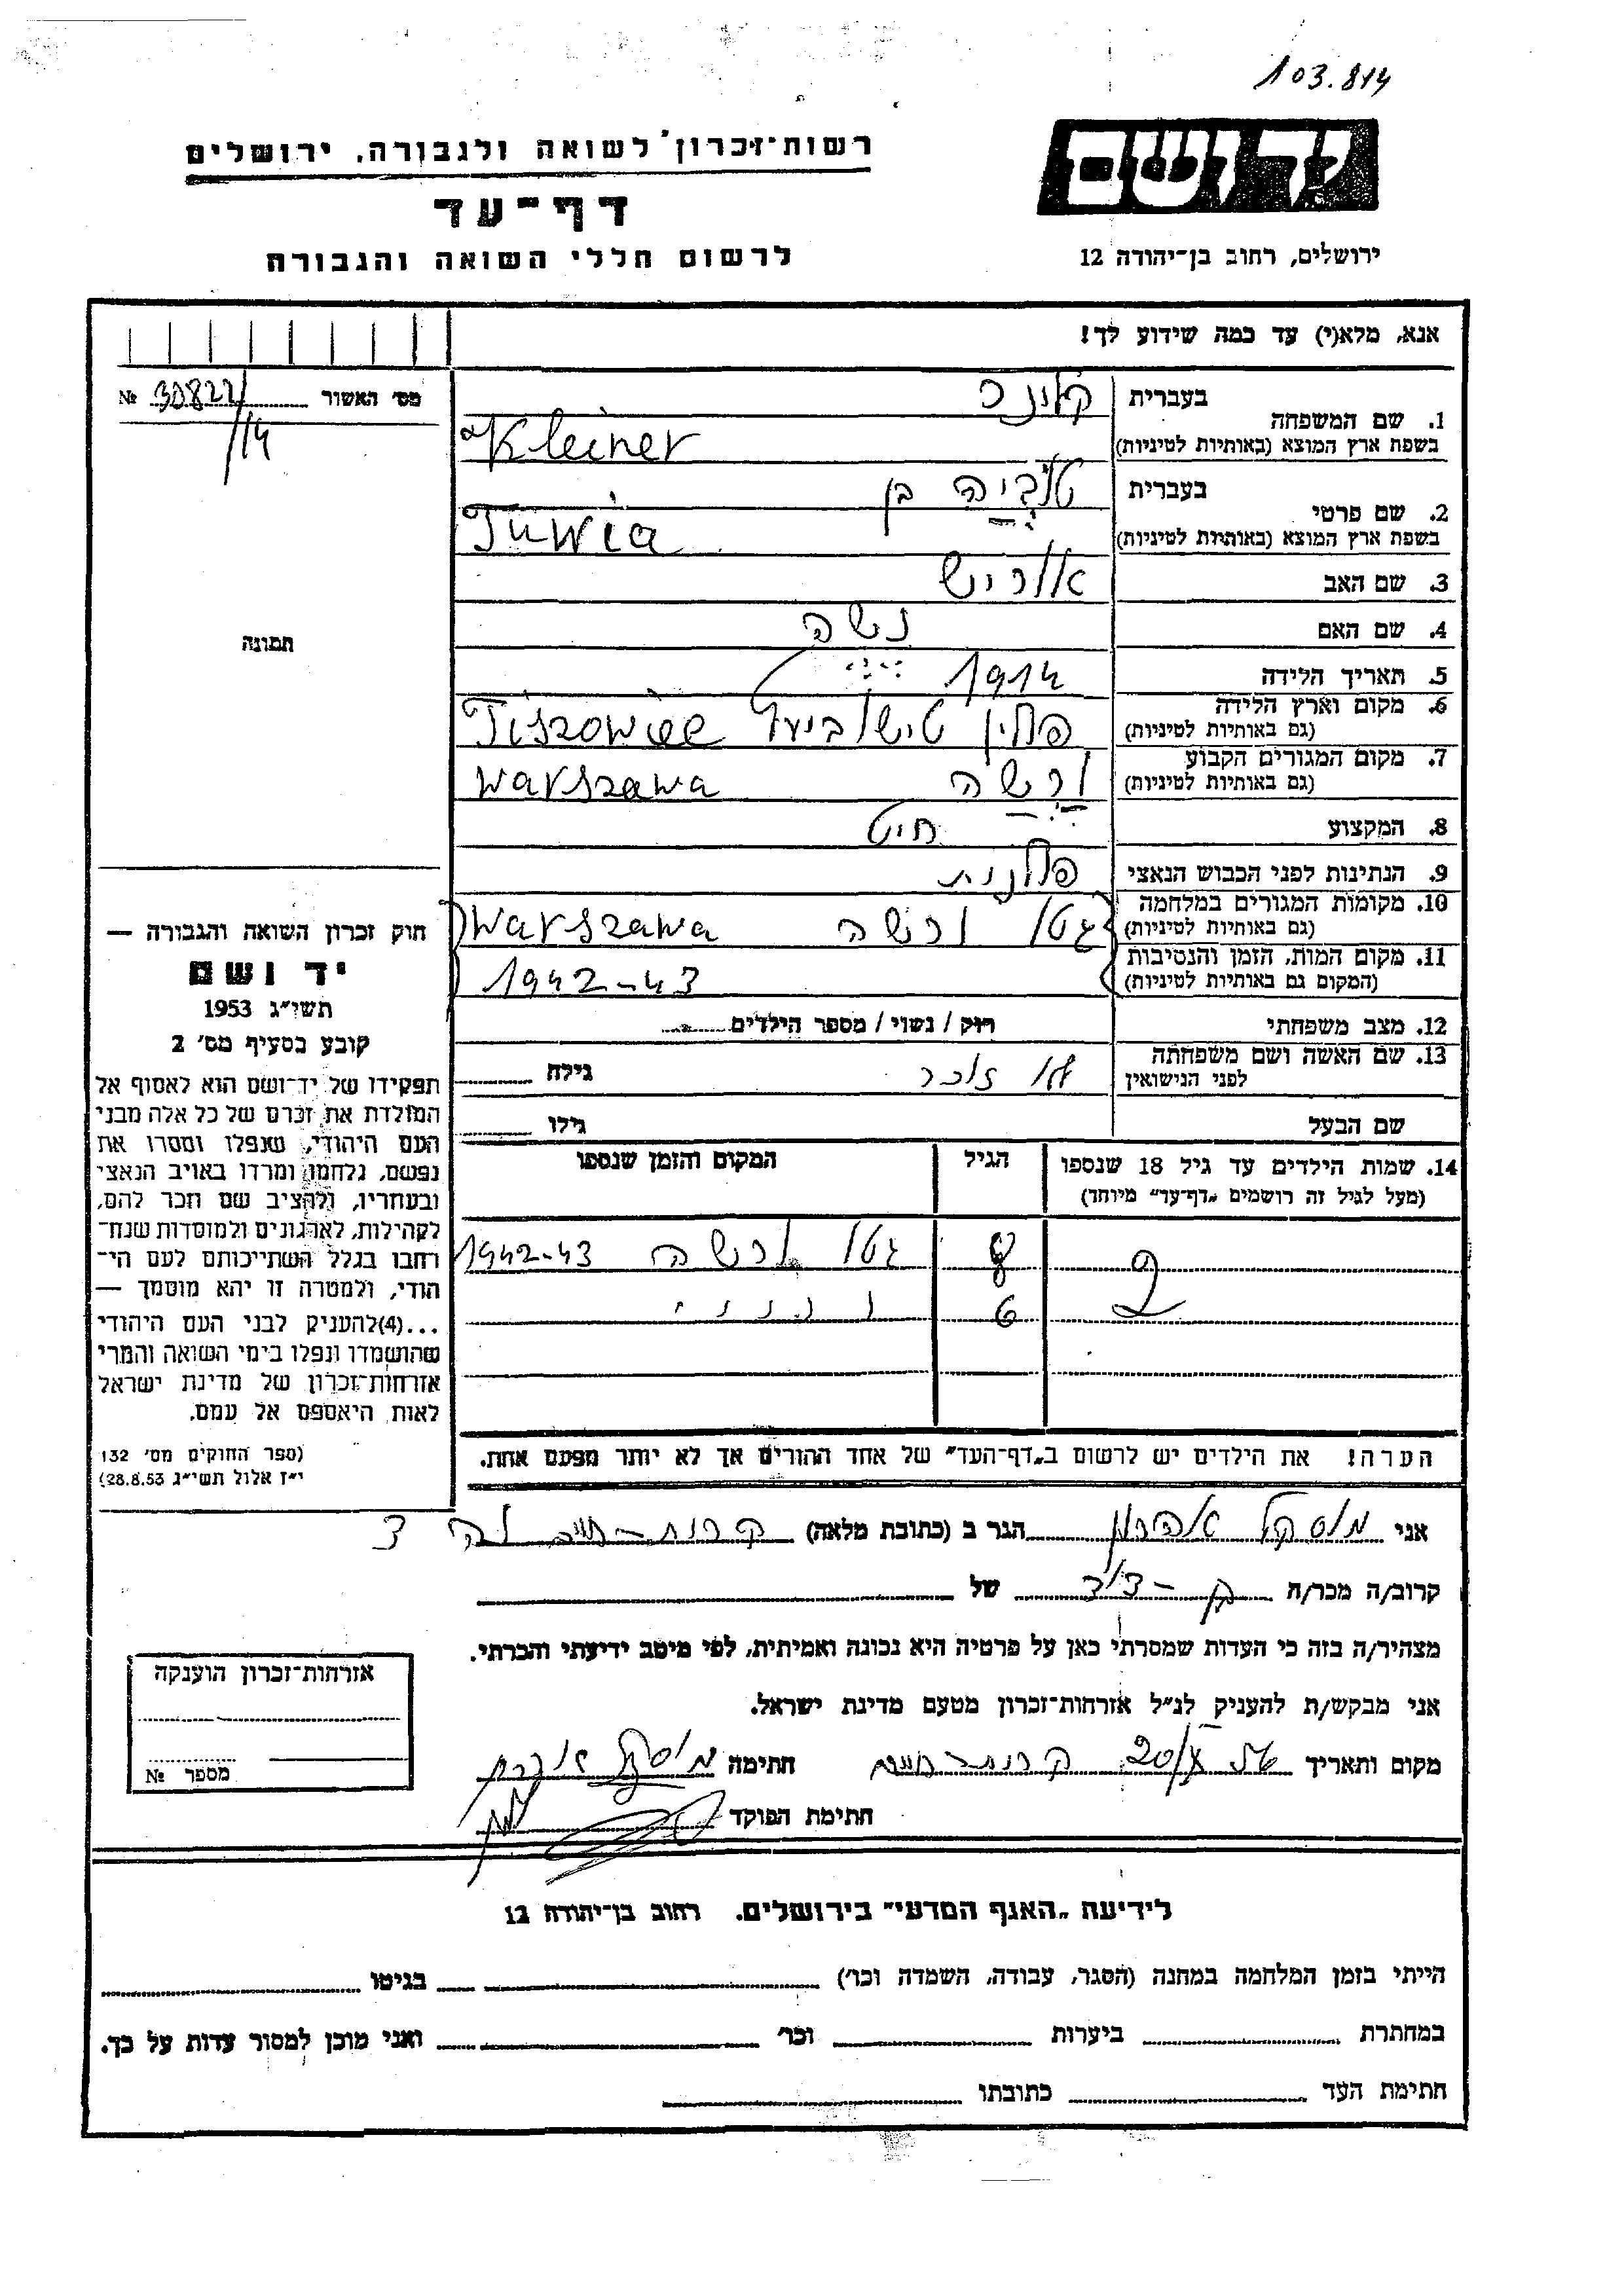 103.814
רשות־זכרון לשואה ולגבורה, ירושלים
יד ושם
דף־עד
לרשום חללי השואה והגבורה
ירושלים, רחוב בן־יהודה 12
אנא, מלא(י) עד כמה שידוע לך!
מס׳ האשור 30822/14 №
1. שם המשפחה בעברית קלינר
בשפת ארץ המוצא (באותיות לטיניות) Kleiner
2. שם פרטי בעברית טוביה בן
בשפת ארץ המוצא (באותיות לטיניות) Tuwia
3. שם האב
4. שם האם נשה
תמונה
5. תאריך הלידה 1914
6. מקום וארץ הלידה
(גם באותיות לטיניות) פולין טישוביעץ Tiszowiec
7. מקום המגורים הקבוע
(גם באותיות לטיניות) ורשה Warszawa
8. המקצוע חיט
9. הנתינות לפני הכבוש הנאצי פולנית
10. מקומות המגורים במלחמה
(גם באותיות לטיניות) גטו ורשה Warszawa
11. מקום המות, הזמן והנסיבות
(המקום גם באותיות לטיניות) 1942-43
12. מצב משפחתי רוק / נשוי / מספר הילדים
13. שם האשה ושם משפחתה
לפני הנישואין לא זוכר גילה
שם הבעל גילו
14. שמות הילדים עד גיל 18 שנספו הגיל המקום והזמן שנספו
(מעל לגיל זה רושמים „דף־עד״ מיוחד)
8 גטו ורשה 1942-43
2 6
הערה! את הילדים יש לרשום ב„דף־העד״ של אחד ההורים אך לא יותר מפעם אחת.
חוק זכרון השואה והגבורה —
יד ושם
תשי״ג 1953
קובע בסעיף מס׳ 2
תפקידו של יד־ושם הוא לאסוף אל
המולדת את זכרם של כל אלה מבני
העם היהודי, שנפלו ומסרו את
נפשם, נלחמו ומרדו באויב הנאצי
ובעוזריו, ולהציב שם וזכר להם,
לקהילות, לארגונים ולמוסדות שנח־
רבו בגלל השתייכותם לעם הי־
הודי, ולמטרה זו יהא מוסמך —
...(4)להעניק לבני העם היהודי
שהושמדו ונפלו בימי השואה והמרי
אזרחות־זכרון של מדינת ישראל
לאות היאספם אל עמם.
(ספר החוקים מס׳ 132
י״ז אלול תשי״ג 28.8.53)
אני מוסקל אהרון הגר ב (כתובת מלאה) קרית-חיים 3
קרוב/ה מכר/ה בן-דוד של
מצהיר/ה בזה כי העדות שמסרתי כאן על פרטיה היא נכונה ואמיתית, לפי מיטב ידיעתי והכרתי.
אני מבקש/ת להעניק לנ״ל אזרחות־זכרון מטעם מדינת ישראל.
מקום ותאריך קרית-חיים חתימה מוסקל אהרון
חתימת הפוקד
אזרחות־זכרון הוענקה
מספר №
לידיעת „האגף המדעי״ בירושלים. רחוב בן־יהודה 12
הייתי בזמן המלחמה במחנה (הסגר, עבודה, השמדה וכו׳) בגיטו
במחתרת ביערות וכו׳ ואני מוכן למסור עדות על כך.
חתימת העד כתובתו